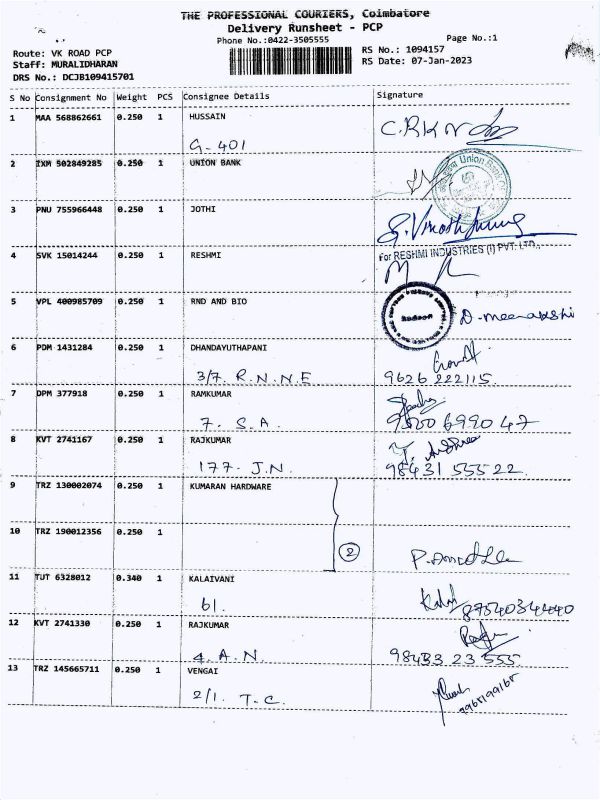 THE PROFESSIONAL COURIERS, Coimbatore
Delivery Runsheet - PCP
Phone No.:0422-3505555
Page No.:1
Route: VK ROAD PCP
RS No.: 1094157
Staff: MURALIDHARAN
RS Date: 07-Jan-2023
DRS No.: DCJB109415701
S No Consignment No Weight PCS Consignee Details Signature
1 MAA 568862661 0.250 1 HUSSAIN
G-401
C.RKN
2 IXM 502849285 0.250 1 UNION BANK
Union Bank
3 PNU 755966448 0.250 1 JOTHI
4 SVK 15014244 0.250 1 RESHMI
For RESHMI INDUSTRIES (I) PVT. LTD.,
5 VPL 400985709 0.250 1 RND AND BIO
D-meenakshi
6 PDM 1431284 0.250 1 DHANDAYUTHAPANI
3/7. R.N.N.E
9626 222115
7 DPM 377918 0.250 1 RAMKUMAR
7. S.A.
8 KVT 2741167 0.250 1 RAJKUMAR
177. J.N.
98431 555 22
9 TRZ 130002074 0.250 1 KUMARAN HARDWARE
10 TRZ 190012356 0.250 1
2
11 TUT 6328012 0.340 1 KALAIVANI
61.
8754034440
12 KVT 2741330 0.250 1 RAJKUMAR
4. A.N.
98433 23 555
13 TRZ 145665711 0.250 1 VENGAI
2/1. T.C.